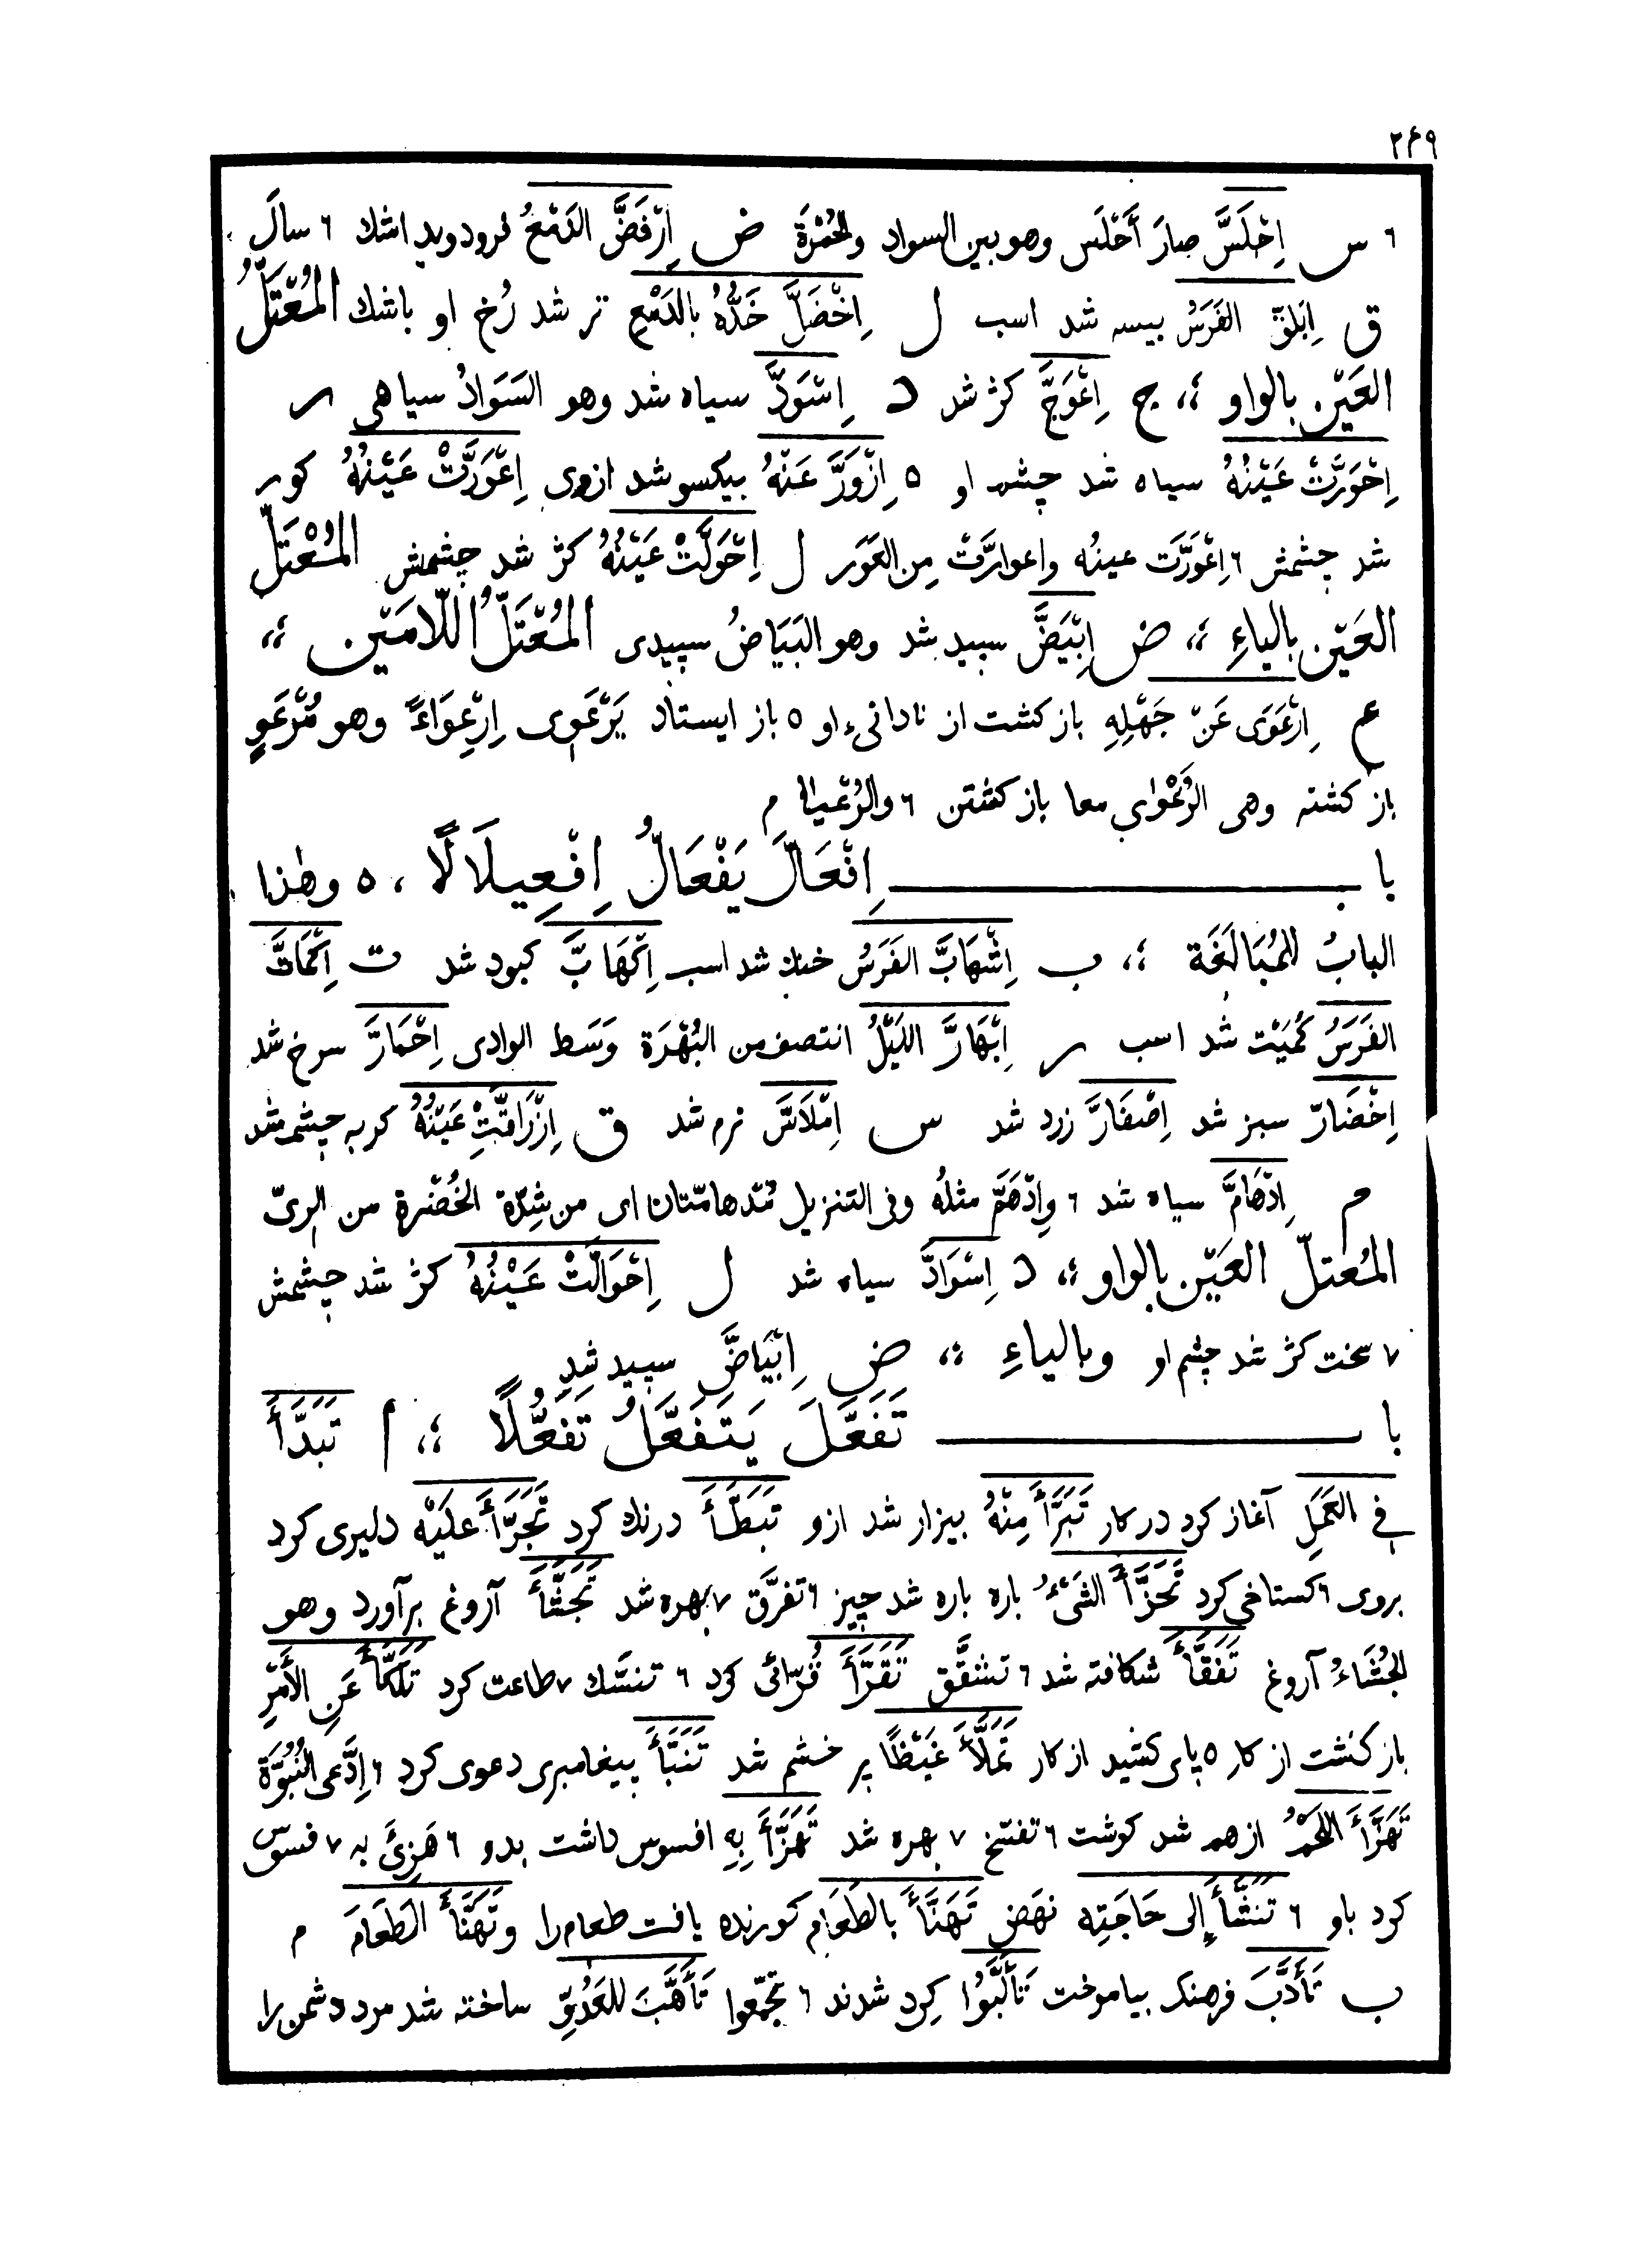 ۲۶۹
۶ س اِحْلَسَّ صارَ أَحْلَس وهو بين السواد والحُمْرَة ض اِرْفَضَّ الدَمْعُ فرو دويد اشك ۶ سالَ
ق اِبْلَقَّ الفَرَسُ بيسه شد اسب ل اِخْضَلَّ خَدُّهُ بالدَمْعِ تر شد رُخ او باشك المُعْتَلُّ
العَيْنِ بالواو ؛، ج اِعْوَجَّ كژ شد د اِسْوَدَّ سياه شد وهو السَوَادُ سياهى ر
اِحْوَرَّتْ عَيْنُهُ سياه شد چشم او ۵ اِزْوَرَّ عَنْهُ بيكسو شد ازوى اِعْوَرَّتْ عَيْنُهُ كور
شد چشمش ۶ اِعْوَرَّت عينُه واعوارَّتْ مِن العَوَر ل اِحْوَلَّتْ عَيْنُهُ كژ شد چشمش المُعْتَلُّ
العَيْنِ بالياءِ ؛، ض اِبْيَضَّ سپيد شد وهو البَيَاضُ سپيدى المُعْتَلُّ اللّامَيْنِ ؛،
ع اِرْعَوَى عَنْ جَهْلِهِ باز كشت از نادانىء او ۵ باز ايستاد يَرْعَوِى اِرْعِوَاءً وهو مُرْعَوٍ
باز كشته وهى الرُعْوٰى معا باز كشتن ۶ والرُعْيا م
با ب اِفْعَالَّ يَفْعَالُّ اِفْعِيلَالًا ، ۵ وهٰذا
البابُ للمُبَالَغَة ؛، ب اِشْهَابَّ الفَرَسُ خنك شد اسب اِكْهَابَّ كبود شد ت اِكْمَاتَّ
الفَرَسُ كُمَيْت شد اسب ر اِبْهَارَّ اللَيْلُ انتصف من البُهْرَة وَسَط الوادى اِحْمَارَّ سرخ شد
اِخْضَارّ سبز شد اِصْفَارَّ زرد شد س اِمْلَاسَّ نرم شد ق اِزْرَاقَّتْ عَيْنُهُ كربه چشم شد
م اِدْهَامَّ سياه شد ۶ واِدْهَمَّ مثلُه وفى التنزيل مُدهامّتان اى من شِدّة الخُضْرة من الرىّ
المُعتلّ العَيْنِ بالواو ؛، د اِسْوَادَّ سياه شد ل اِحْوَالَّتْ عَيْنُهُ كژ شد چشمش
۷ سخت كژ شد چشم او وبالياءِ ؛، ض اِبْيَاضَّ سپيد شد
با ب تَفَعَّلَ يَتَفَعَّلُ تَفَعُّلًا ؛، ا تَبَدَّأَ
فى العَمَلِ آغاز كرد در كار تَبَرَّأَ مِنْهُ بيزار شد ازو تَبَطَّأَ درنك كرد تَجَرَّأَ عليْه دليرى كرد
بروى ۶ كستاخى كرد تَجَزَّأَ الشَىْءُ باره باره شد چيز ۶ تفرَّق ۷ بهره شد تَجَشَّأَ آروغ برآورد وهو
الجُشَاءُ آروغ تَفَقَّأَ شكافته شد ۶ تشقَّق تَقَرَّأَ قُرّائى كرد ۶ تنسَّك ۷ طاعت كرد تَلَكَّأَ عَنِ الأَمْرِ
باز كشت از كار ۵ پاى كشيد از كار تَمَلَّأَ غَيْظًا پر خشم شد تَنَبَّأَ پيغامبرى دعوى كرد ۶ اِدَّعى النُبُوَّة
تَهَرَّأَ اللَحْمُ از هم شد كوشت ۶ تفسّخ ۷ بهره شد تَهَزَّأَ بِهِ افسوس داشت بدو ۶ هَزِئَ به ۷ فسوس
كرد باو ۶ تَنَشَّأَ إلى حَاجَتِه نهَض تَهَنَّأَ بالطَعَامِ كورنده يافت طعام را وتَهَنَّأَ الطَعَامَ م
ب تَأَدَّبَ فرهنك بياموخت تَأَلَّبُوا كِرد شدند ۶ تجمّعوا تَأَهَّبَ للعَدُوّ ساخته شد مرد دشمن را